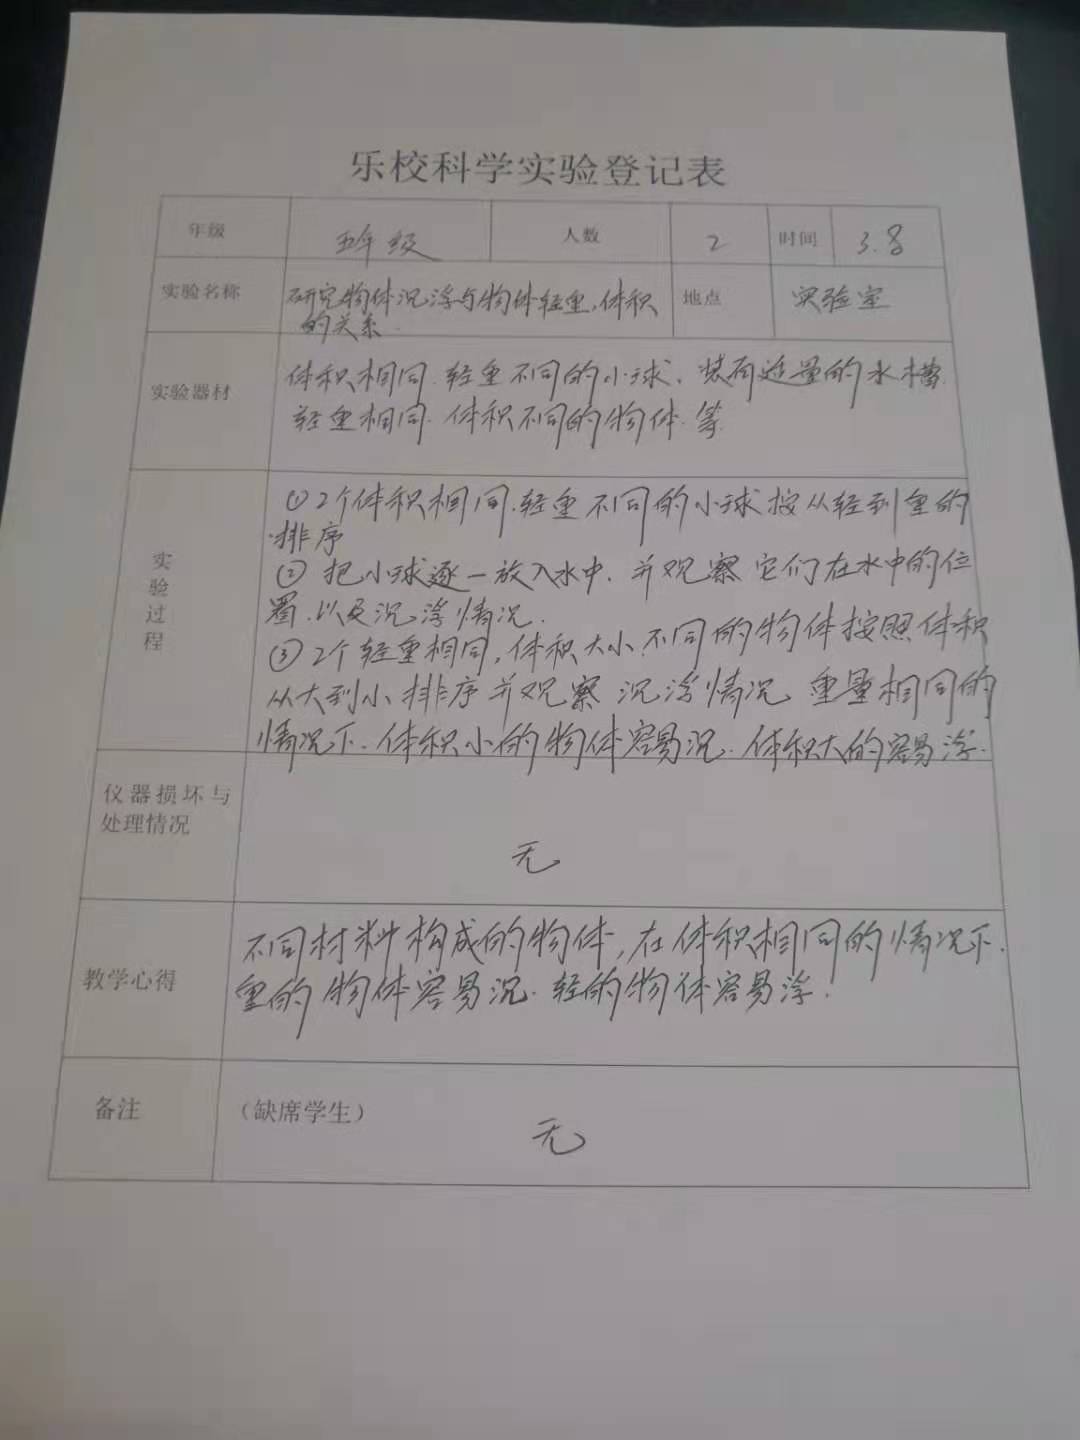 乐校科学实验登记表
年级 五年级 人数 2 时间 3.8
实验名称 研究物体沉浮与物体轻重、体积
的关系.
地点 实验室
实验器材 体积相同.轻重不同的小球、装有适量的水槽.
轻重相同.体积不同的物体.等
实验过程 ①2个体积相同.轻重不同的小球按从轻到重的
排序
②把小球逐一放入水中.并观察它们在水中的位
置.以及沉浮情况.
③2个轻重相同,体积大小不同的物体按照体积
从大到小排序并观察沉浮情况 重量相同的
情况下.体积小的物体容易沉.体积大的容易浮.
仪器损坏与
处理情况
无
教学心得 不同材料构成的物体,在体积相同的情况下.
重的物体容易沉.轻的物体容易浮.
备注 (缺席学生)
无